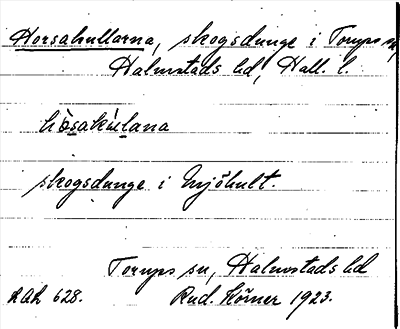 Horsakullarna, skogsdunge i Torups sn,
Halmstads hd, Hall. l.
hòsakùlana
skogsdunge i Mjöhult.
Torups sn, Halmstads hd
RAÄ 628. Rud. Körner 1923.